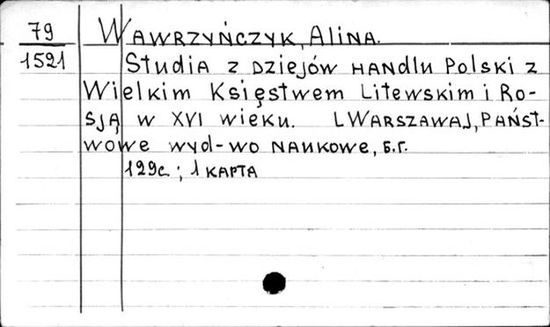 79 WAWRZYŃCZYK, ALINA.
1521 STUDIA Z DZIEJÓW HANDLU POLSKI Z
WIELKIM KSIĘSTWEM LITEWSKIM I RO-
SJĄ W XVI WIEKU. [WARSZAWA], PAŃST-
WOWE WYD-WO NAUKOWE, Б.Г.
129с.; 1 КАРТА